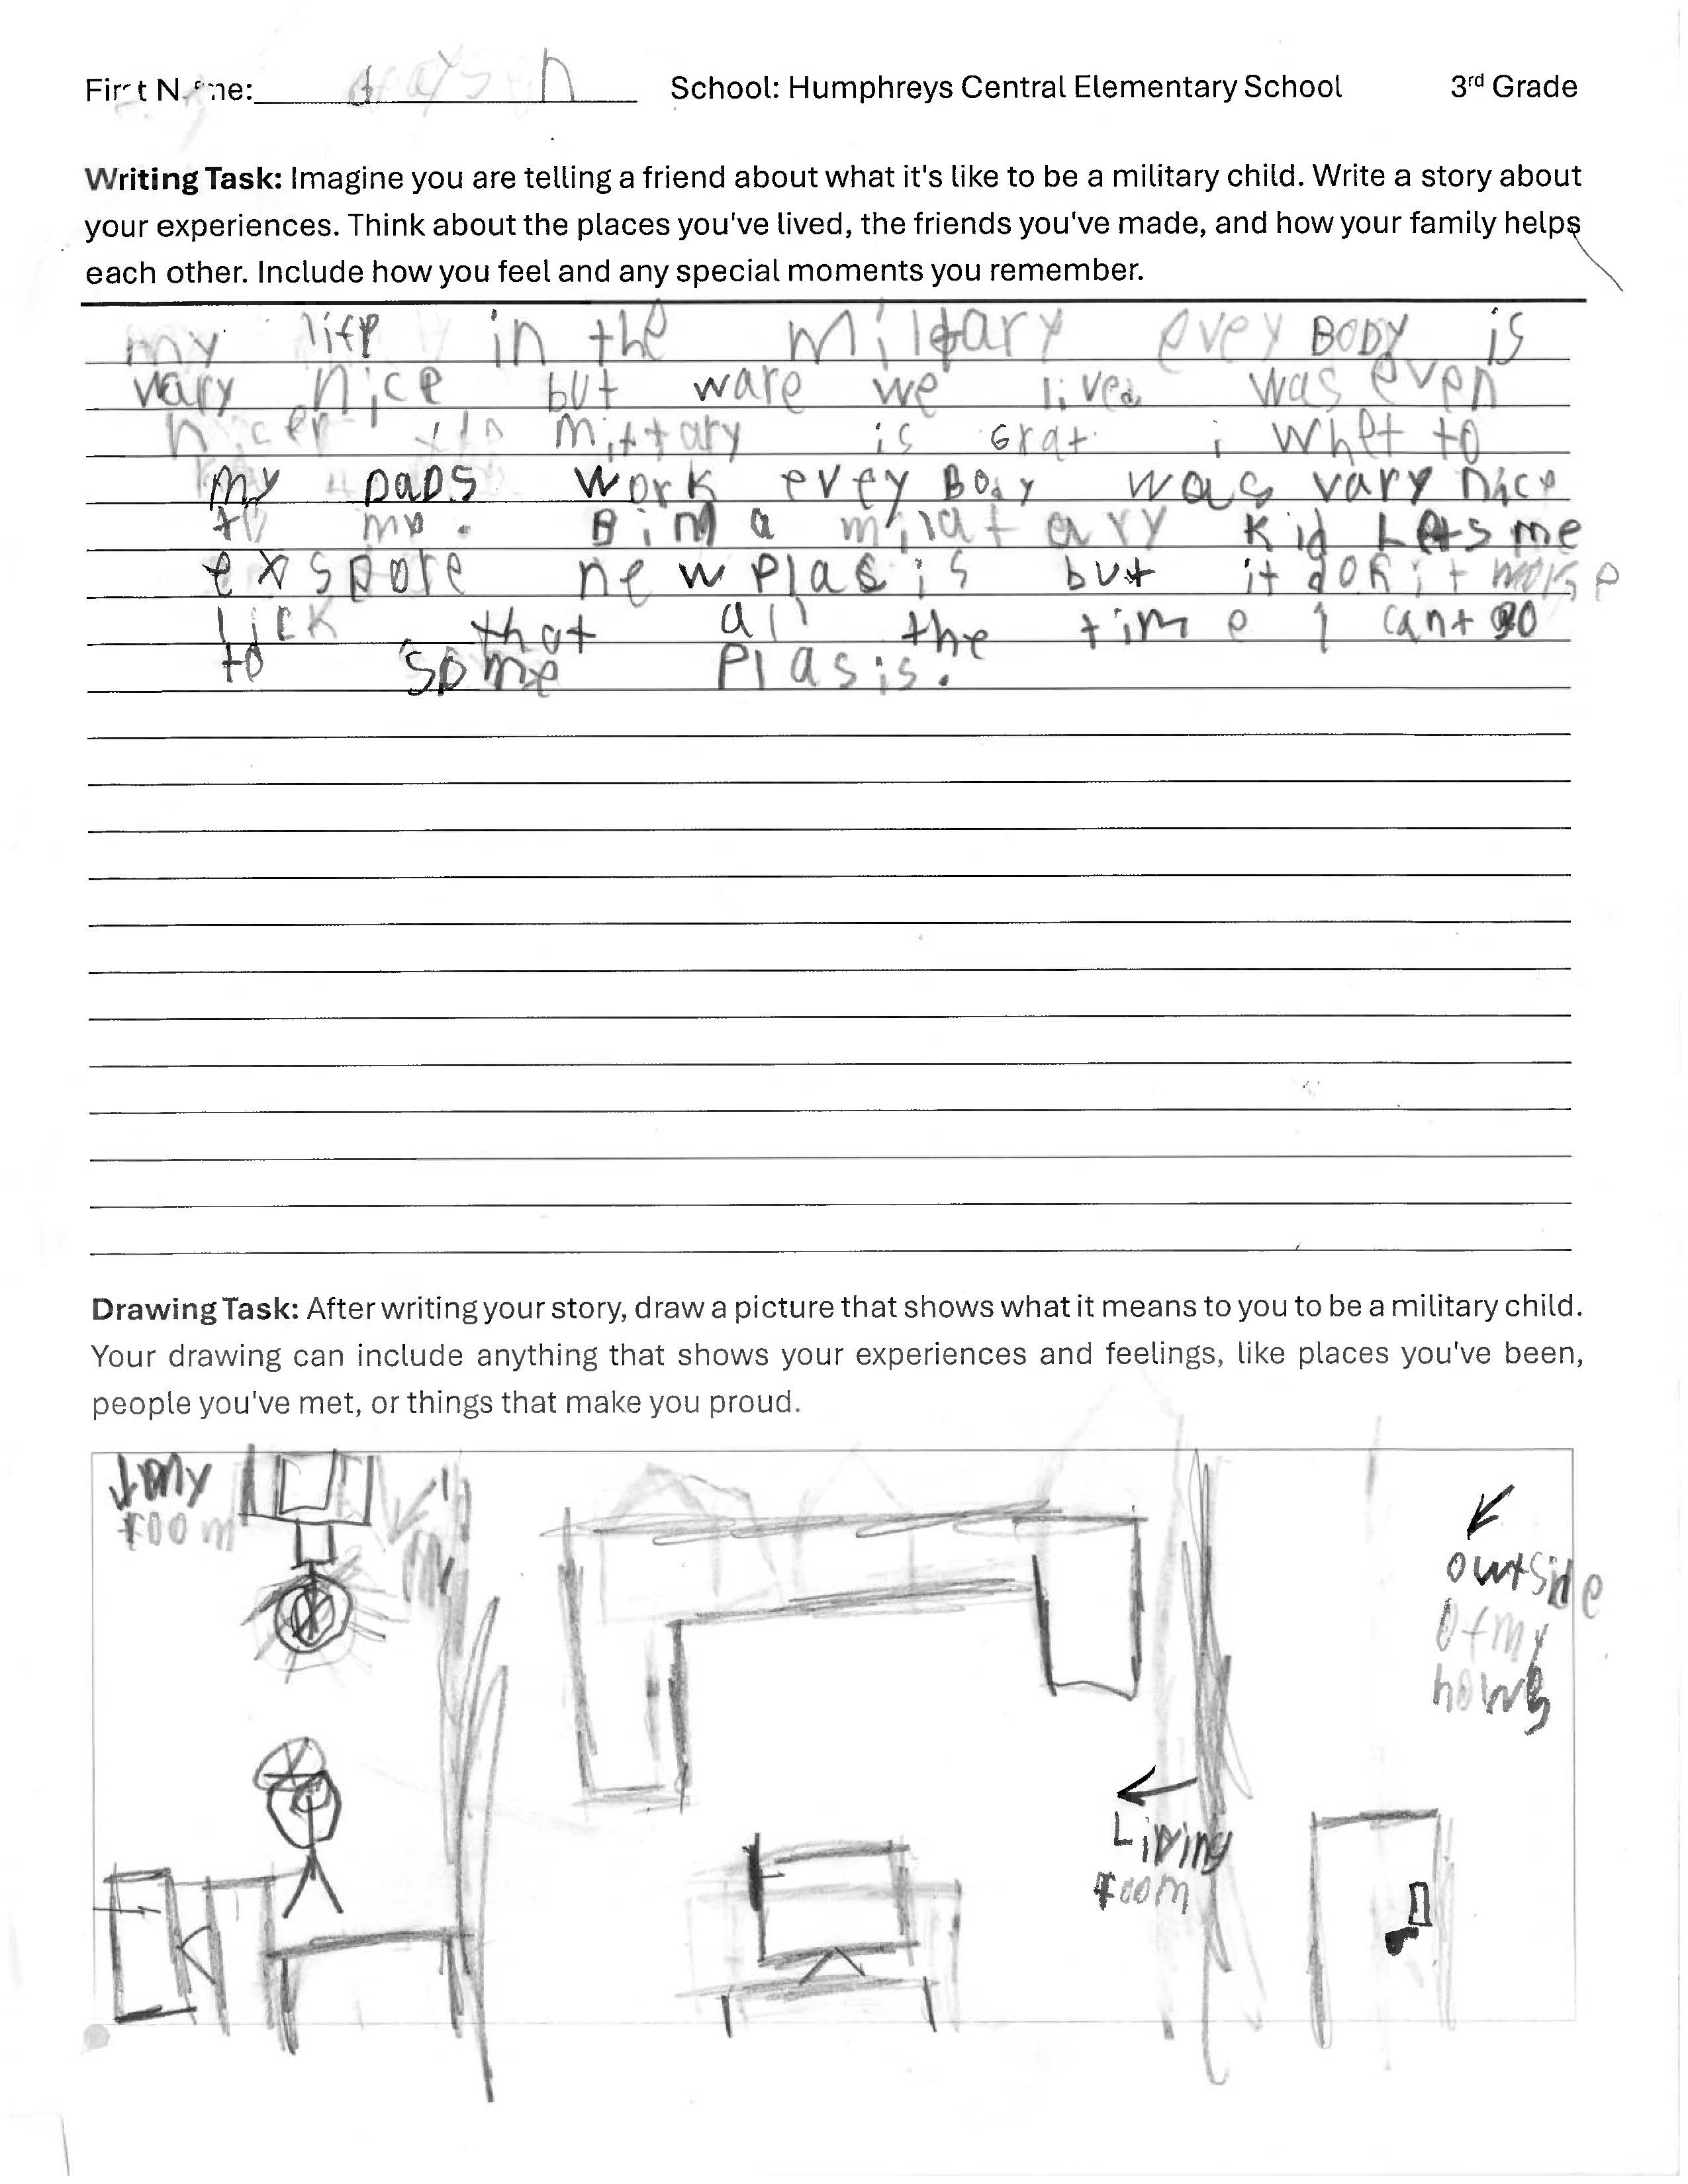 First Name: Graysen School: Humphreys Central Elementary School 3rd Grade
Writing Task: Imagine you are telling a friend about what it's like to be a military child. Write a story about
your experiences. Think about the places you've lived, the friends you've made, and how your family helps
each other. Include how you feel and any special moments you remember.
my life in the military evey BODY is
vary nice but ware we lived was even
nicer military is Grat i whet to
my DaDs work evey BoDy was vary nice
to me. Bing a milatary kid Lets me
exspore new plasis but it don't
lick that all the time I cant go
to some Plasis.
Drawing Task: After writing your story, draw a picture that shows what it means to you to be a military child.
Your drawing can include anything that shows your experiences and feelings, like places you've been,
people you've met, or things that make you proud.
my
room
Living
room
owtside
of my